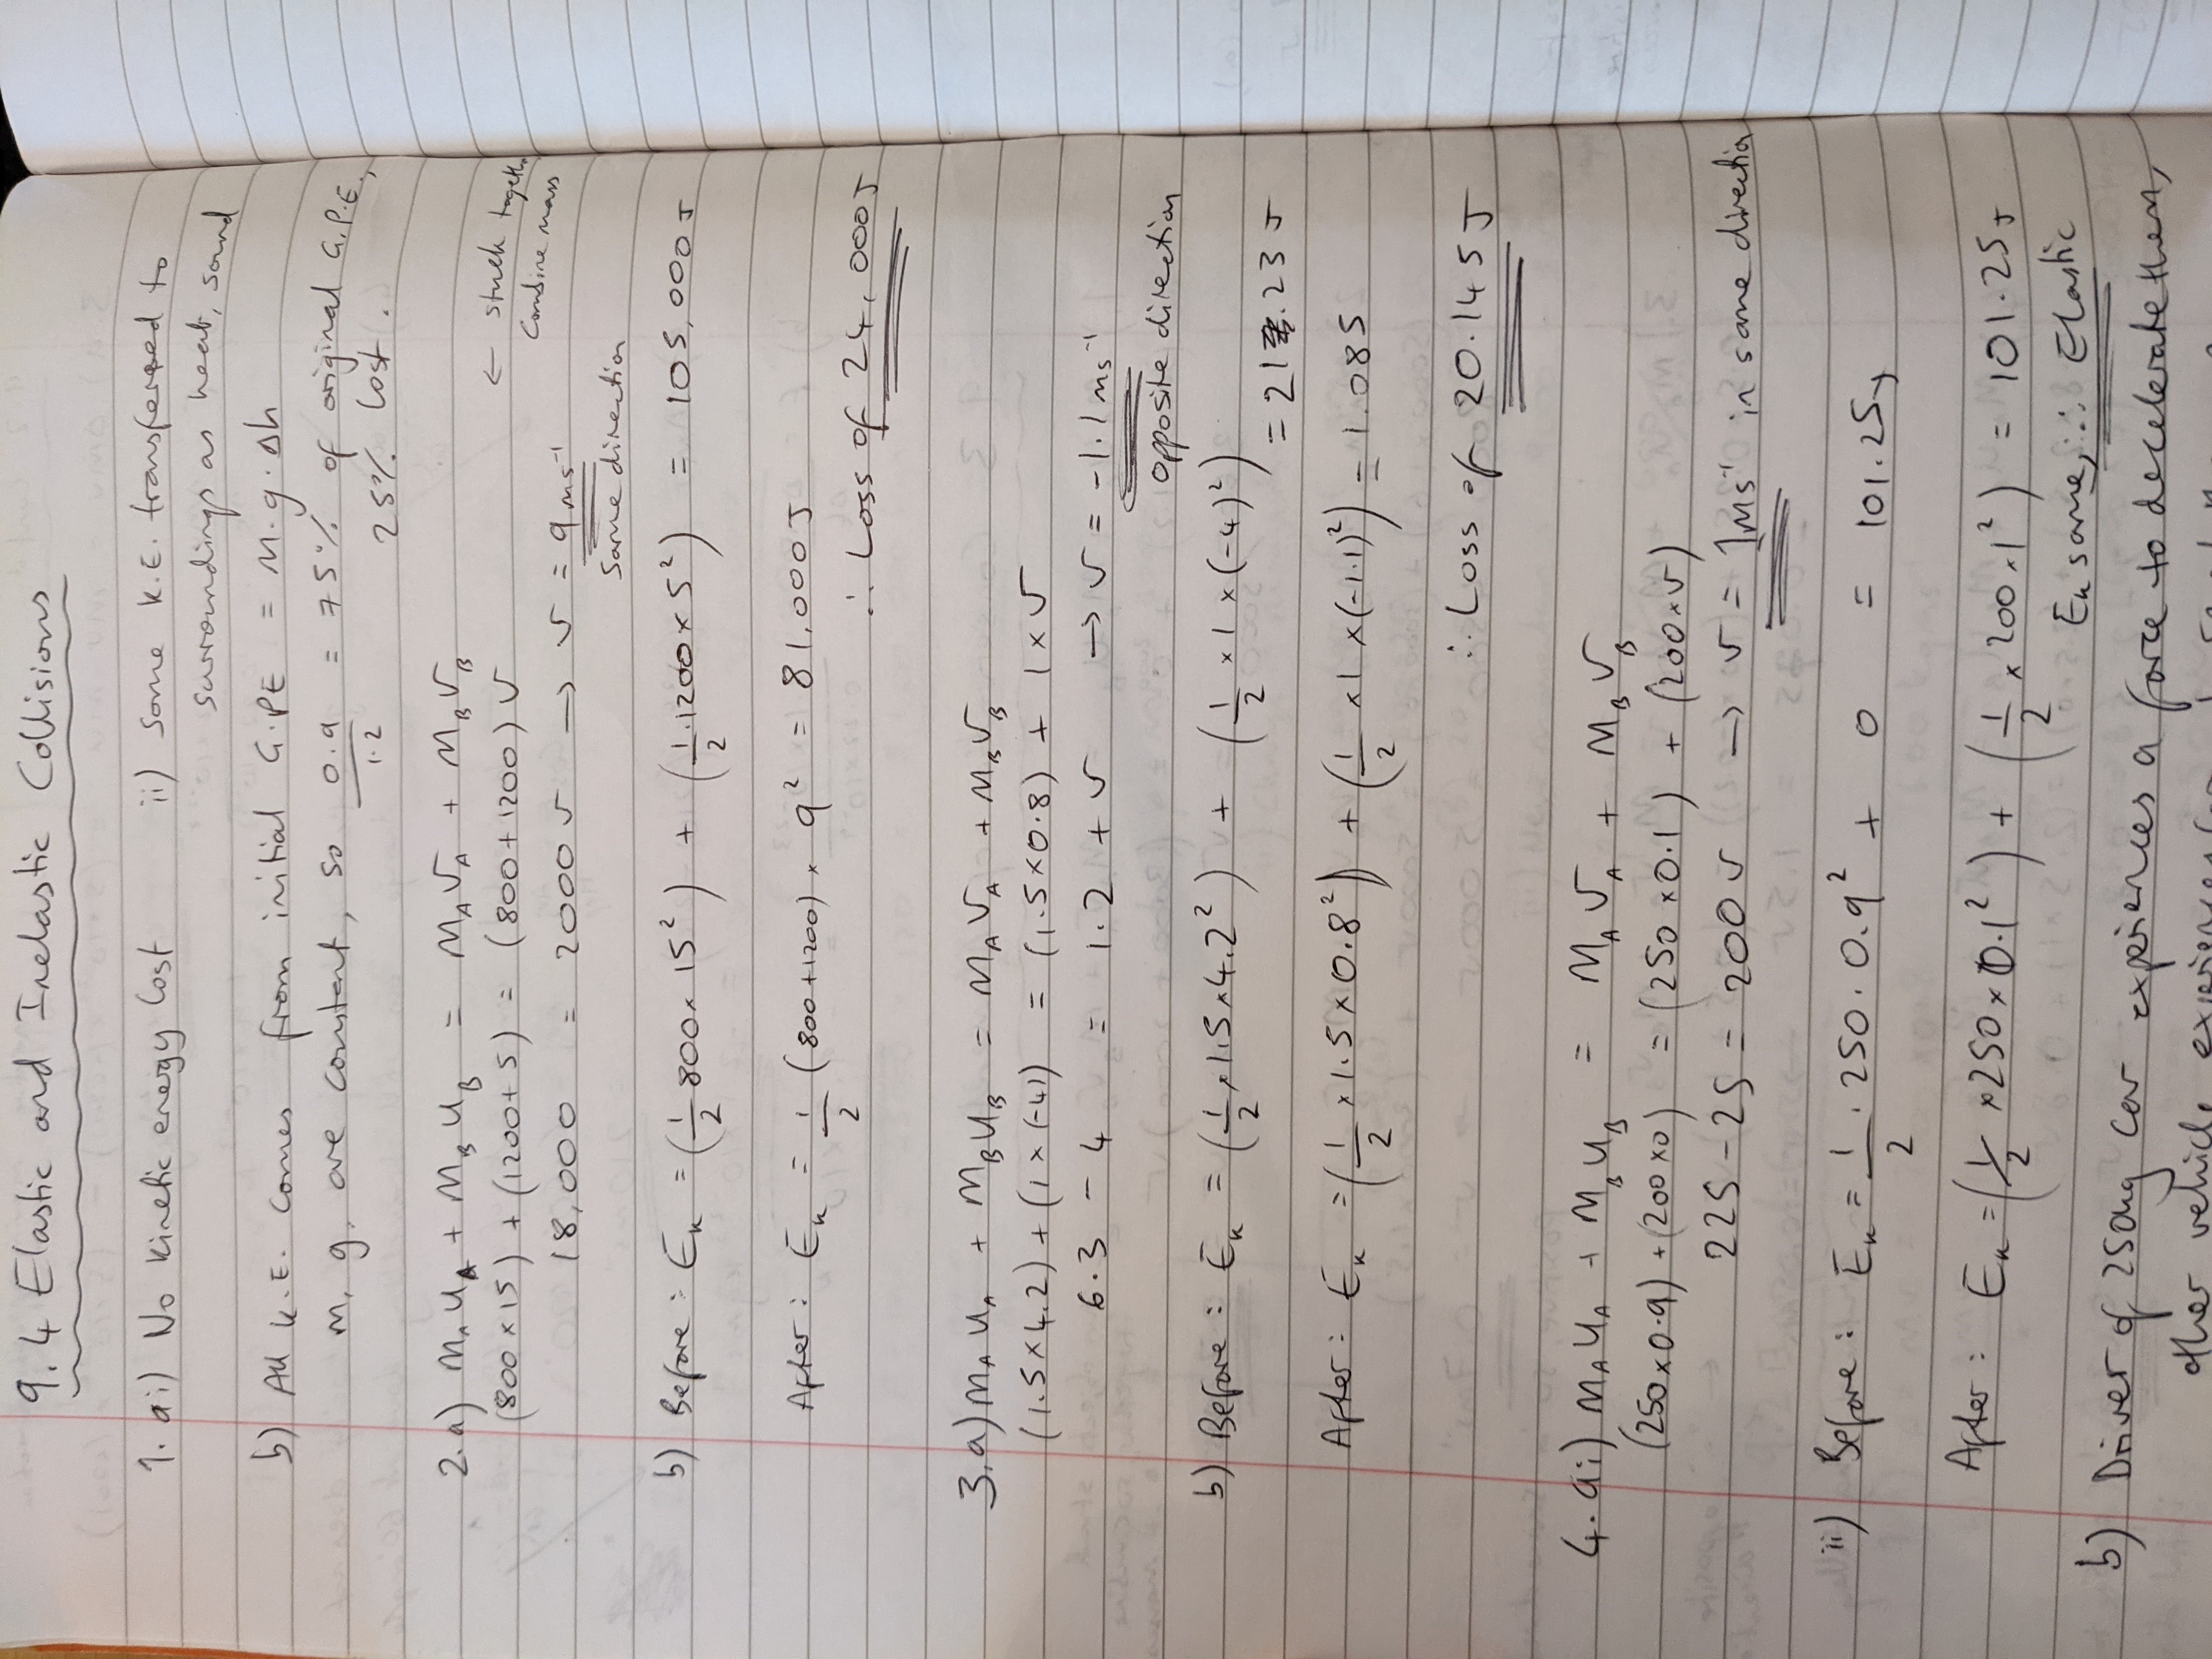 9.4 Elastic and Inelastic Collisions
1. ai) No kinetic energy lost ii) Some K.E. transfered to
surroundings as heat, sound
b) All K.E. comes from initial G.PE = m.g.Δh
m, g, are constant, so 0.9/1.2 = 75% of original G.P.E.,
25% lost.
2.a) mAuA + mBuB = mAvA + mBvB
(800×15) + (1200×5) = (800+1200)v ← stuck together
combine mass
18,000 = 2000v → v = 9ms⁻¹
same direction
b) Before: Ek = (1/2 · 800×15²) + (1/2 · 1200×5²) = 105,000J
After: Ek = 1/2 (800+1200) × 9² = 81,000J
∴ Loss of 24,000J
3.a) mAuA + mBuB = mAvA + mBvB
(1.5×4.2) + (1×(-4)) = (1.5×0.8) + 1×v
6.3 - 4 = 1.2 + v → v = -1.1ms⁻¹
opposite direction
b) Before: Ek = (1/2 × 1.5×4.2²) + (1/2 × 1 × (-4)²)
= 21.23J
After: Ek = (1/2 × 1.5×0.8²) + (1/2 × 1 × (-1.1)²) = 1.085
∴ Loss of 20.145J
4. ai) mAuA + mBuB = mAvA + mBvB
(250×0.9) + (200×0) = (250×0.1) + (200×v)
225 - 25 = 200v → v = 1ms⁻¹ in same direction
ii) Before: Ek = 1/2 · 250 · 0.9² + 0 = 101.25J
After: Ek = (1/2 × 250×0.1²) + (1/2 × 200×1²) = 101.25J
Ek same, ∴ Elastic
b) Driver of 250kg car experiences a force to decelerate them,
other vehicle experiences